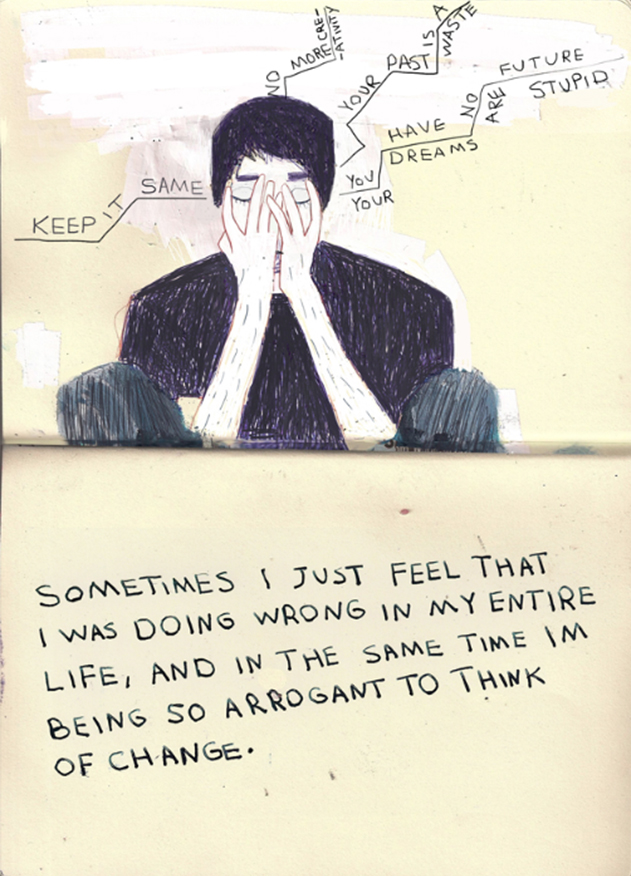 NO MORE CRE-
-ATIVITY
YOUR PAST IS A
WASTE
YOU HAVE NO FUTURE
YOUR DREAMS ARE STUPID
KEEP IT SAME
SOMETIMES I JUST FEEL THAT
I WAS DOING WRONG IN MY ENTIRE
LIFE, AND IN THE SAME TIME IM
BEING SO ARROGANT TO THINK
OF CHANGE.